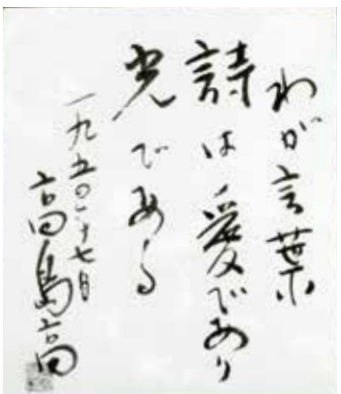 わが言葉
詩は愛であり
光である
一九五〇・十七日
高島高